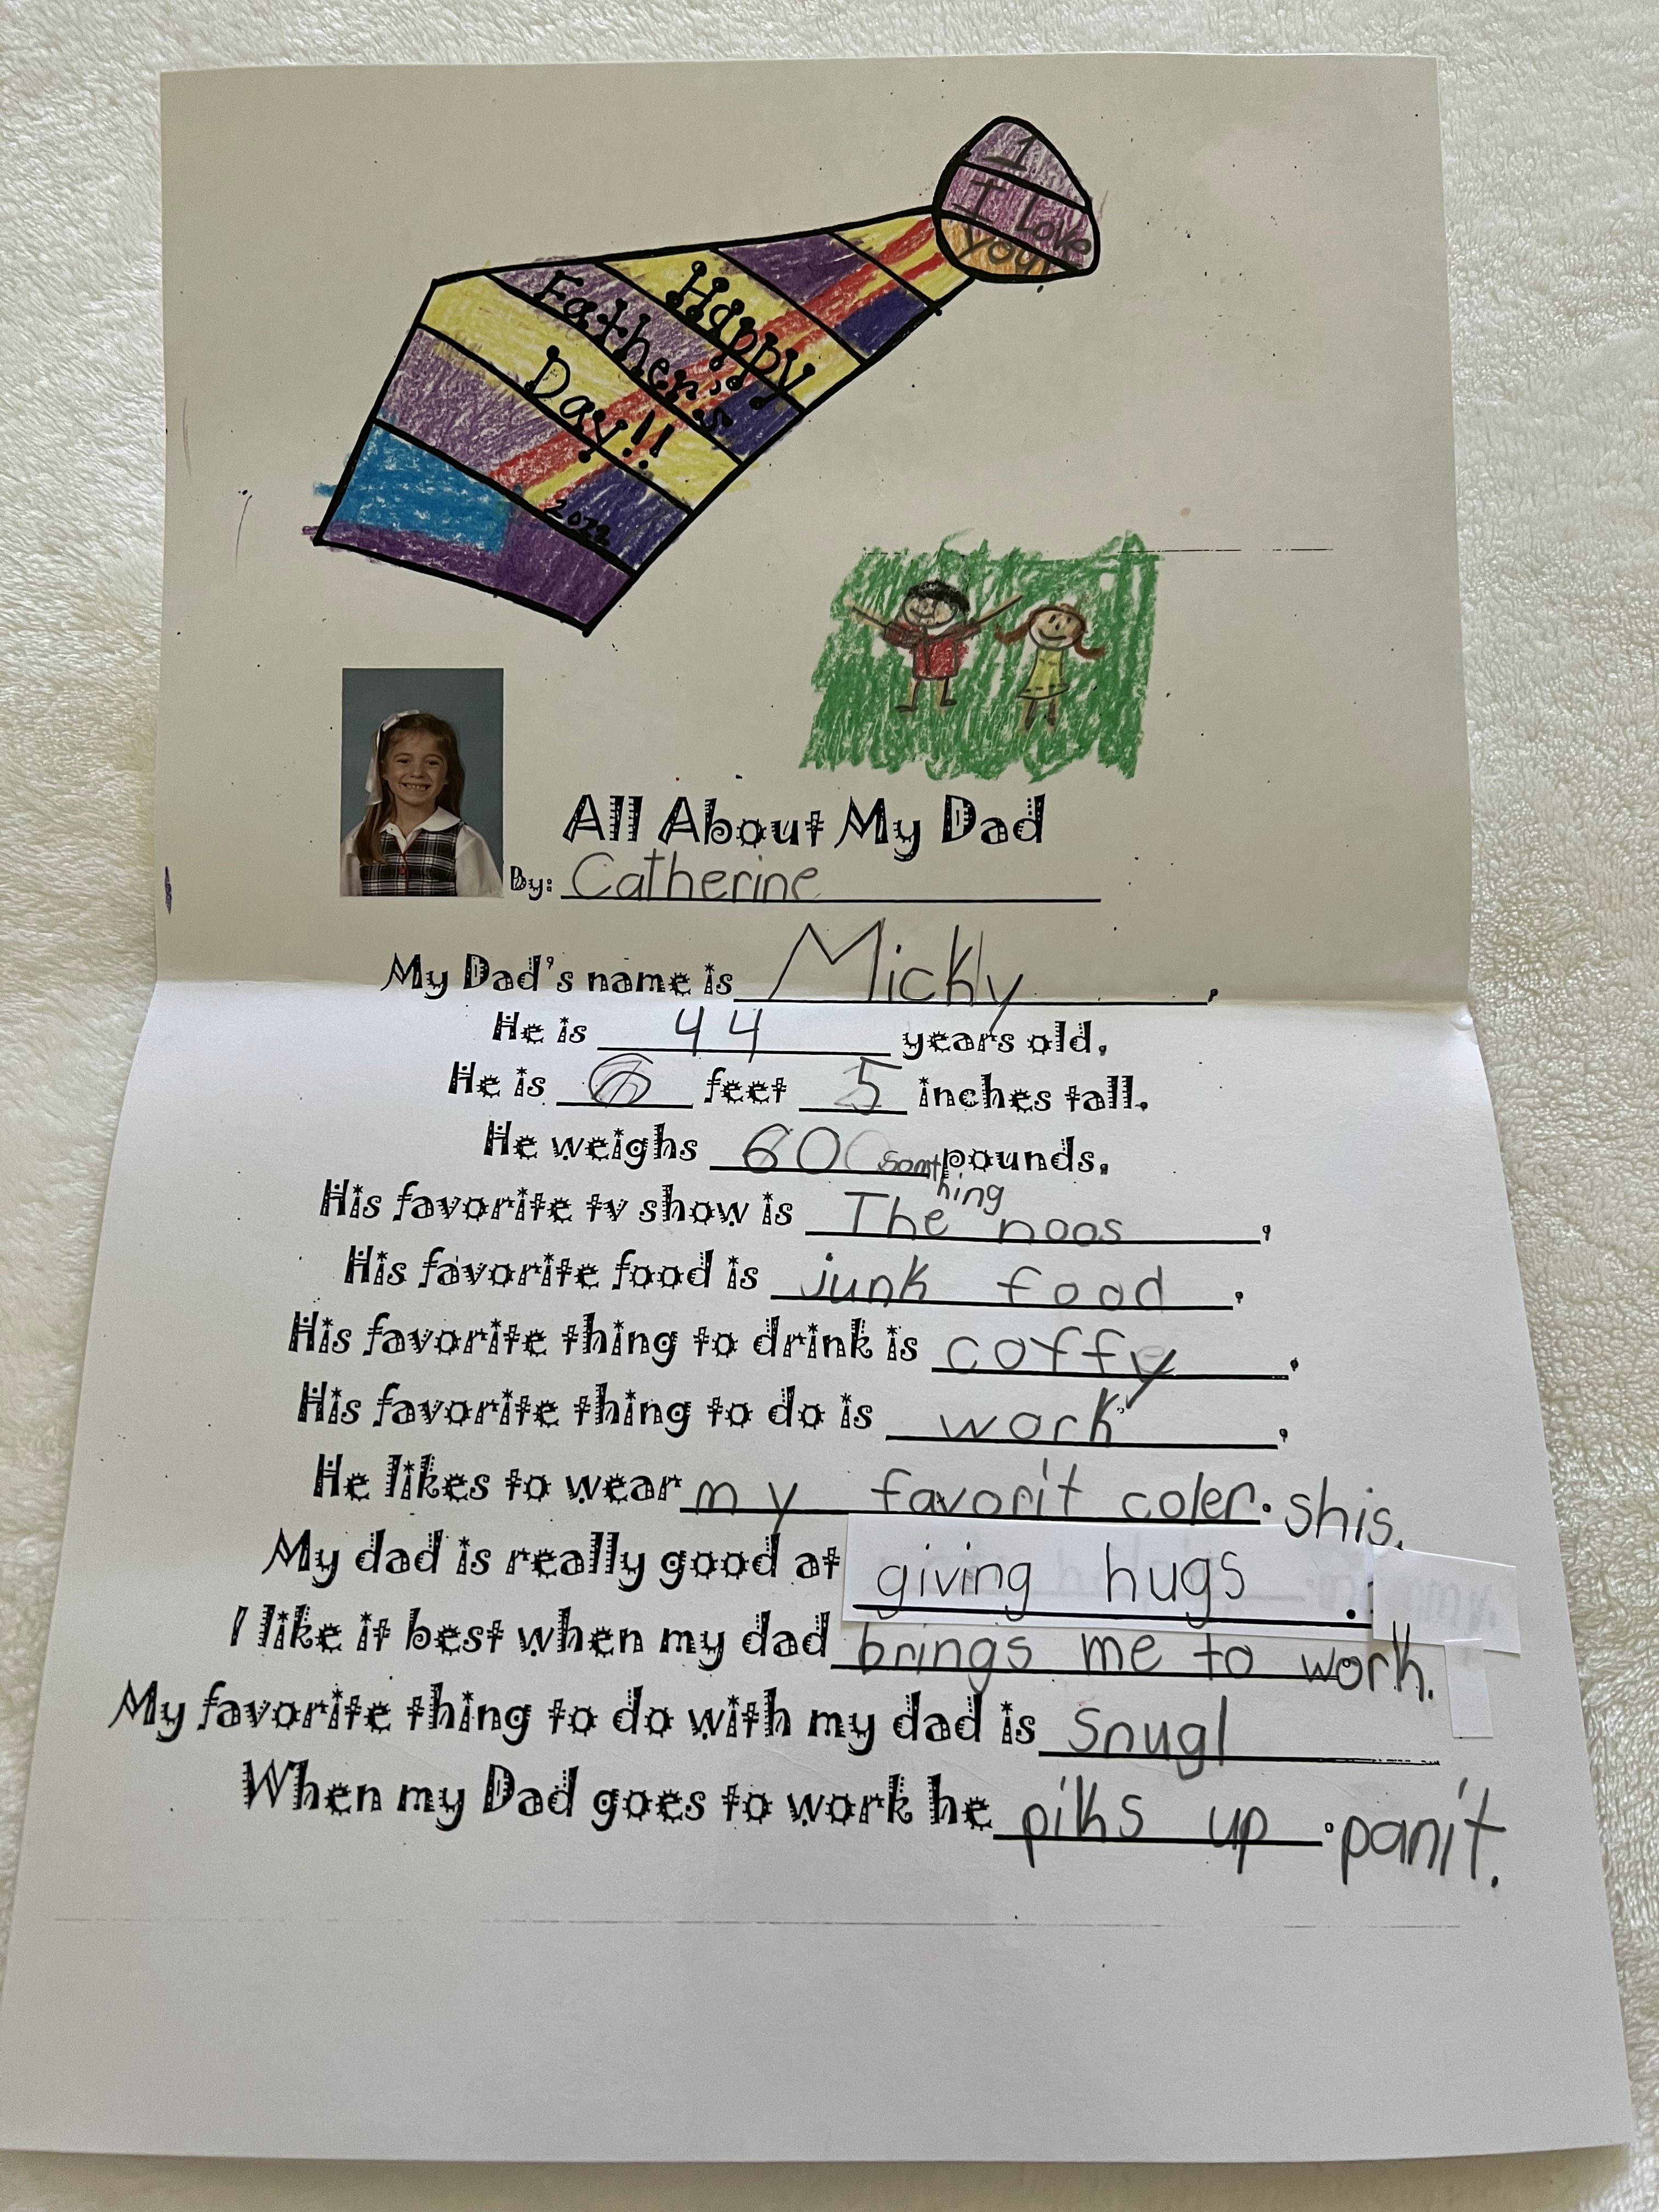 I Love
you
Happy
Father's
Day!!
2022
All About My Dad
By: Catherine
My Dad's name is Mickly.
He is 44 years old.
He is feet 5 inches tall.
He weighs 60 somthing pounds.
His favorite tv show is The noos.
His favorite food is junk food.
His favorite thing to drink is coffy.
His favorite thing to do is work.
He likes to wear my favorit coler. shis.
My dad is really good at giving hugs.
I like it best when my dad brings me to work.
My favorite thing to do with my dad is snugl
When my Dad goes to work he piks up. panit.